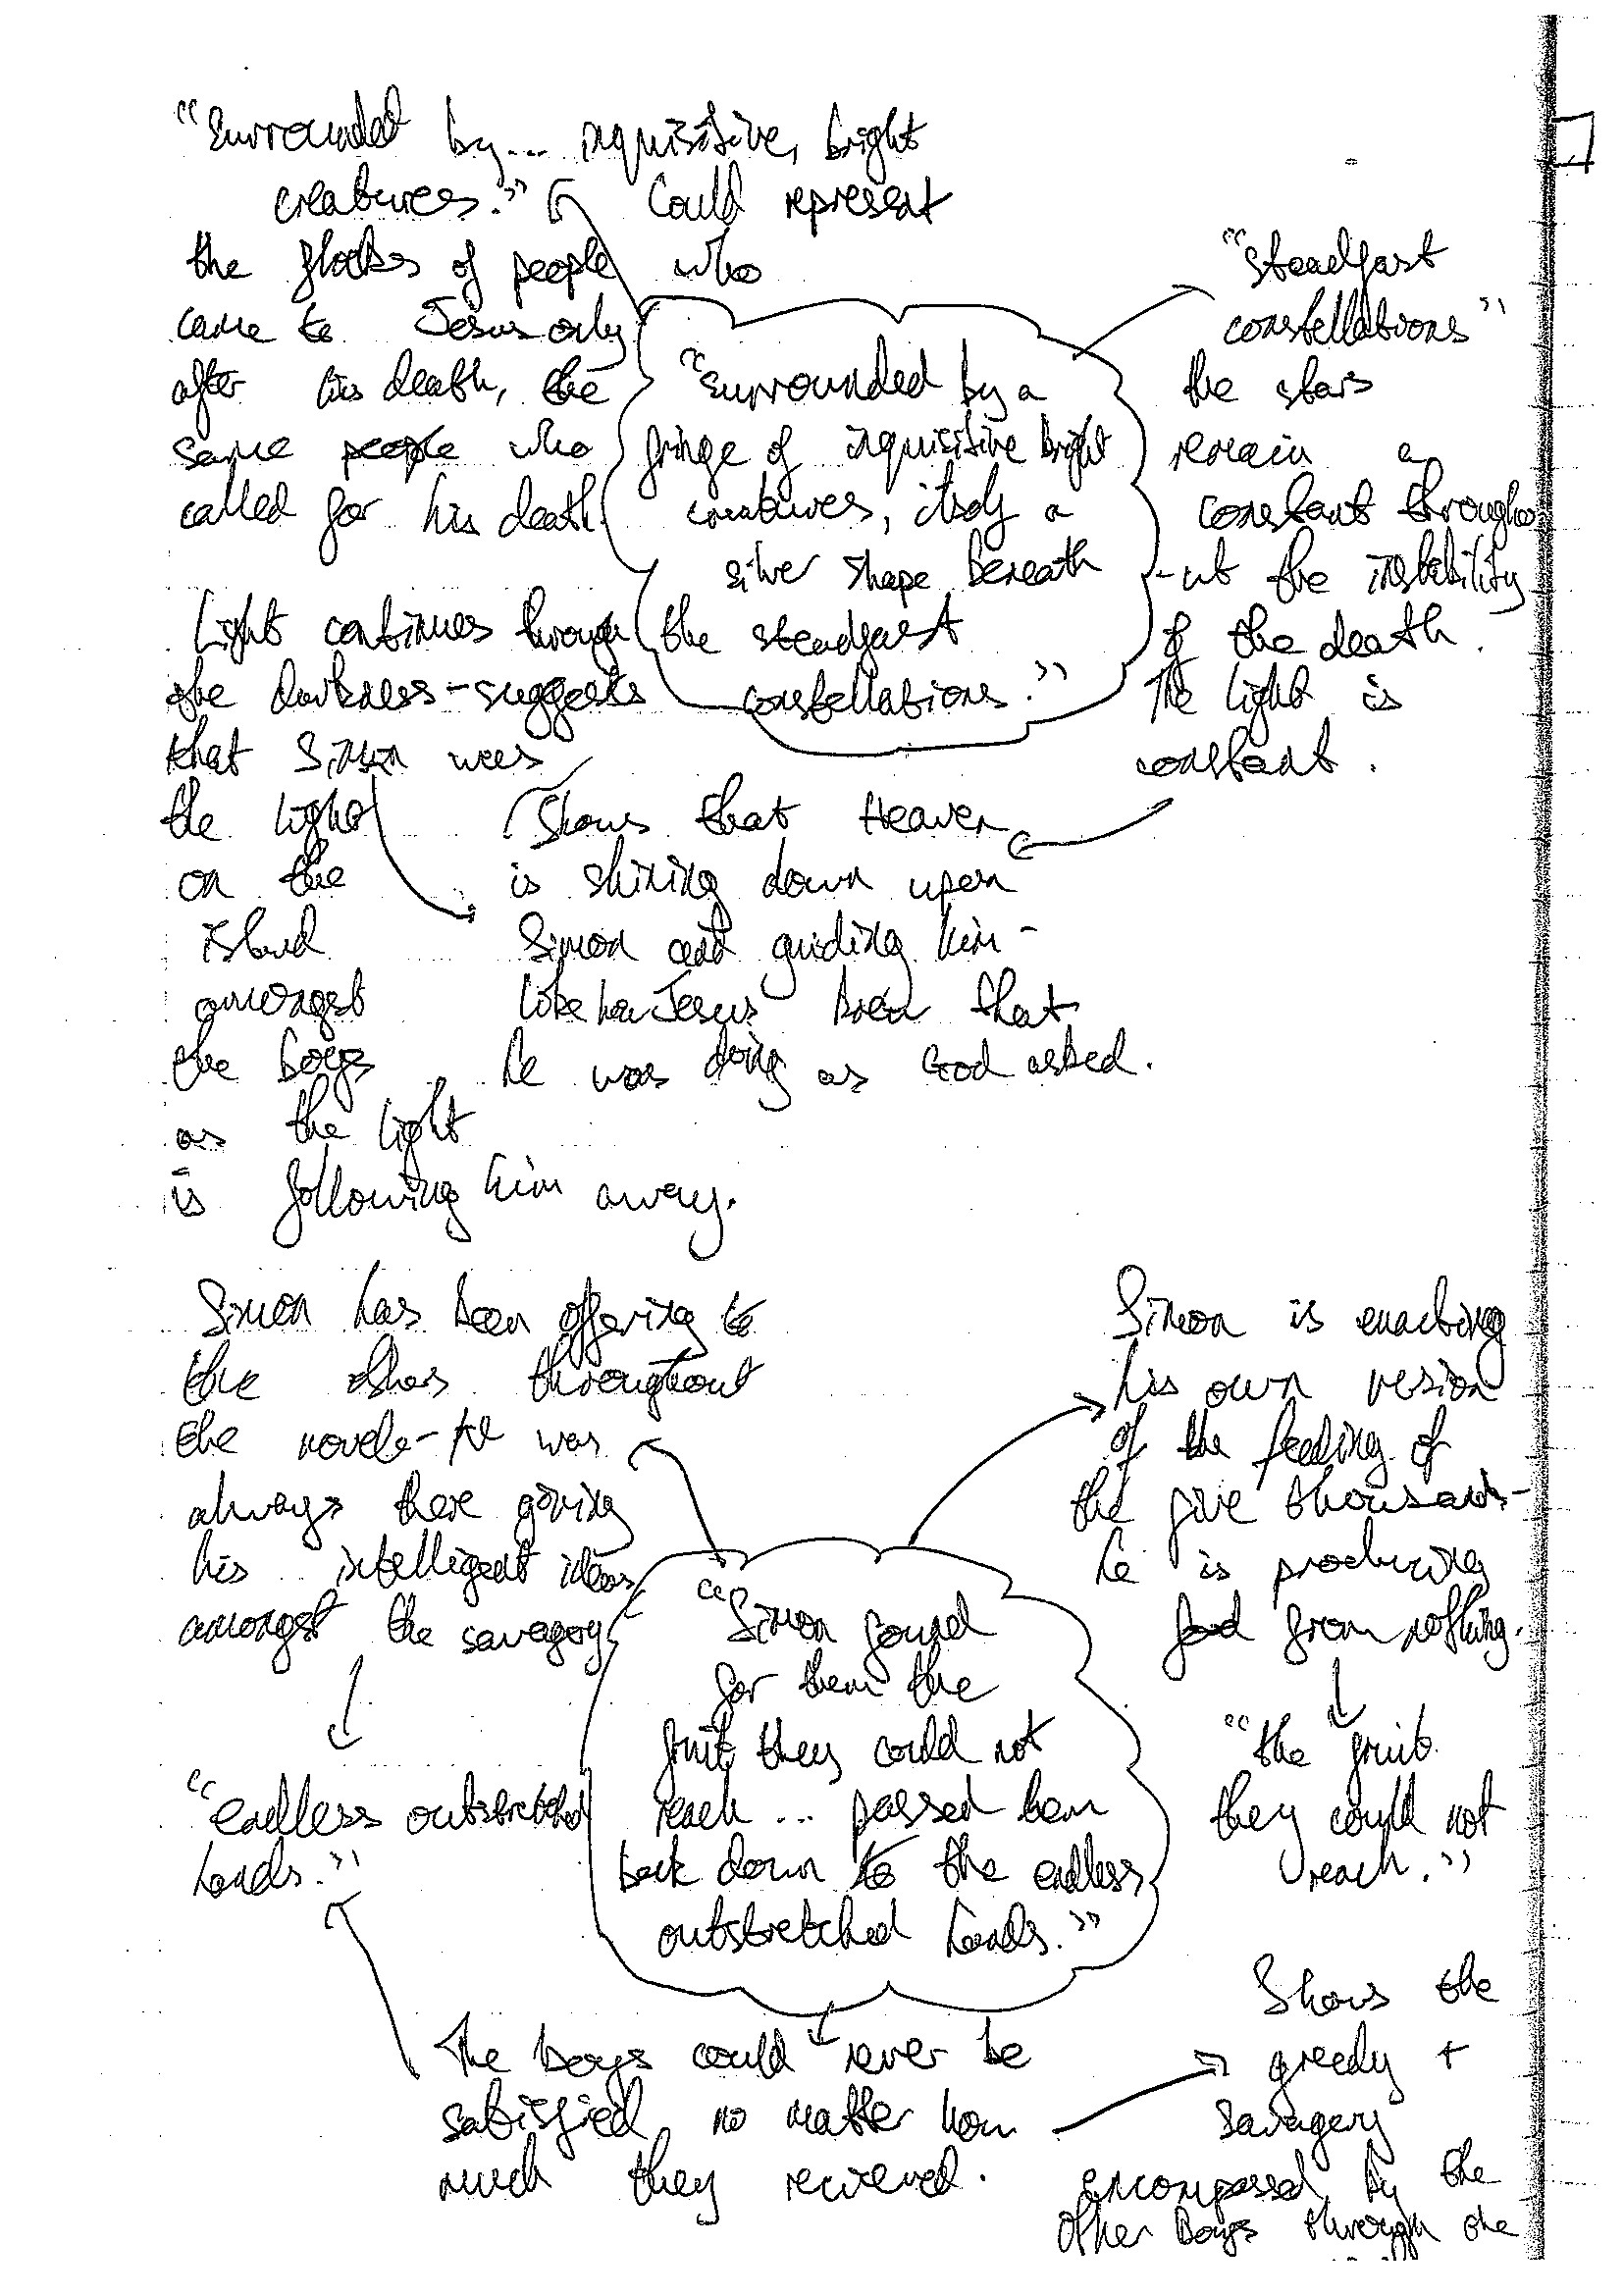 "Surrounded by... inquisitive, bright
creatures." Could represent
the flocks of people who
came to Jesus only
after his death, the
same people who
called for his death.
"surrounded by a
fringe of inquisitive bright
creatures, itself a
silver shape beneath
the steadfast
constellations."
"steadfast
constellations"
the stars
remain a
constant througho
-ut the instability
of the death.
The light is
constant.
Light continues through
the darkness - suggests
that Simon was
the light
on the
island
amongst
the boys
as the light
is following him away.
Shows that Heaven
is shining down upon
Simon and guiding him -
like how Jesus knew that
he was doing as God asked.
Simon has been offering to
the others throughout
the novel - he was
always there giving
his intelligent ideas
amongst the savagery
"endless outstretched
hands."
"Simon found
for them the
fruit they could not
reach... passed them
back down to the endless,
outstretched hands."
Simon is enacting
his own version
of the feeding of
the five thousand -
he is producing
food from nothing.
"the fruit
they could not
reach."
The boys could never be
satisfied no matter how
much they recieved.
Shows the
greedy +
savagery
encompassed by the
other boys through the